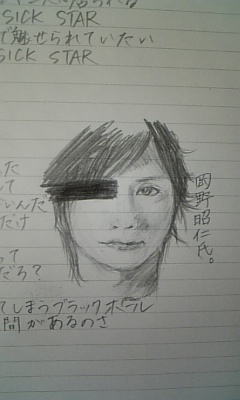 SICK STAR
で魅せられていたい
SICK STAR
岡野昭仁氏。
った
て
いんだ
だけ
って
だろ?
てしまうブラックホール
間があるのさ